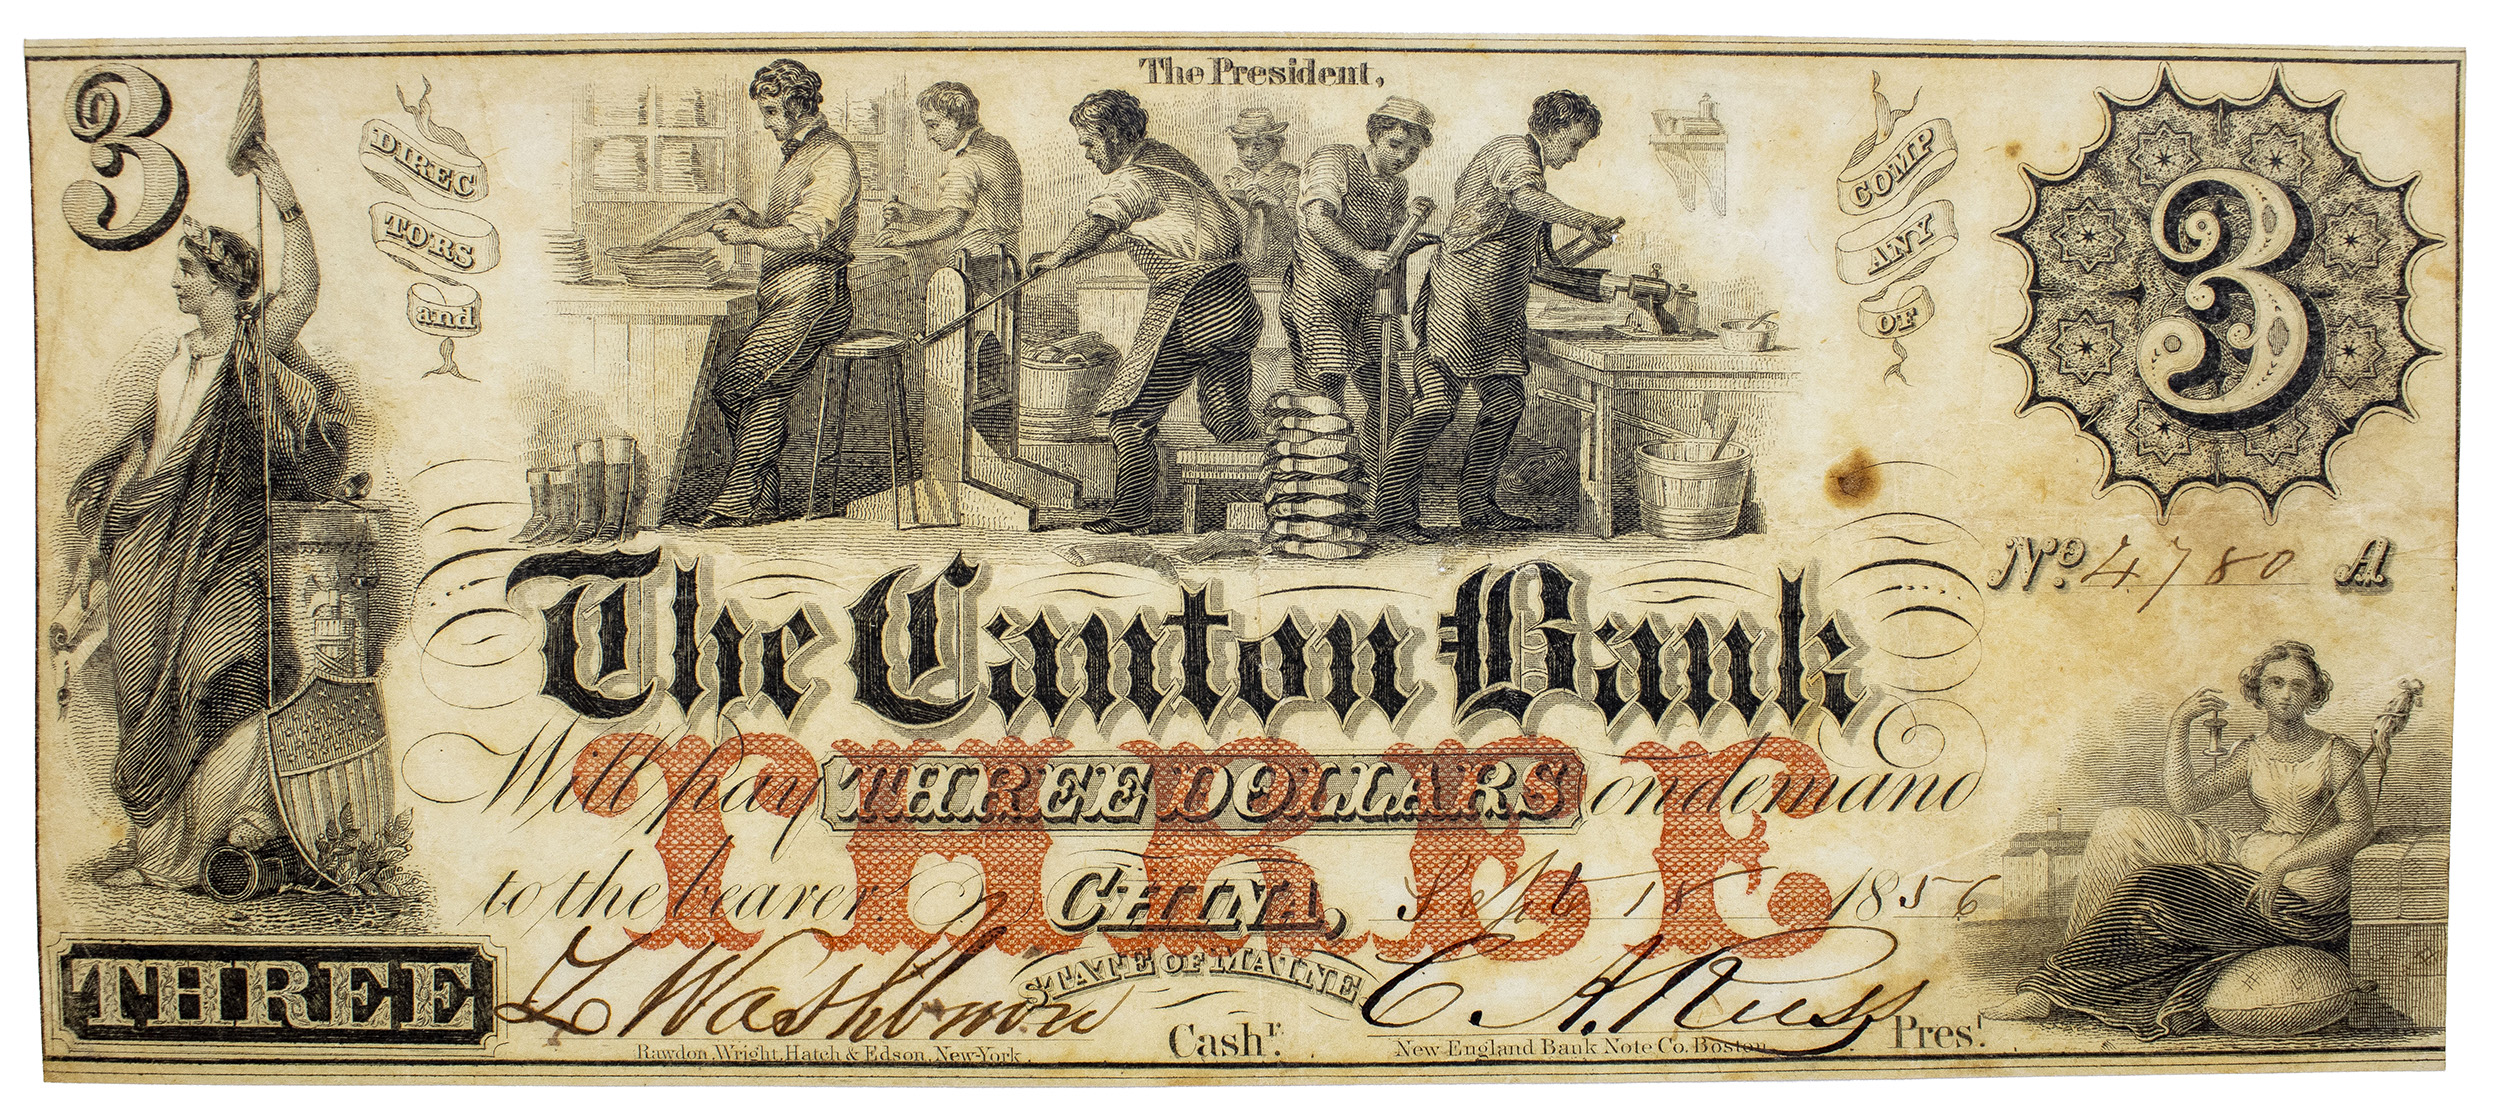 The President,
3
DIREC
TORS
and
COMP
ANY
OF
3
No. 4780 A
The Canton Bank
Will pay THREE DOLLARS on demand
THREE
to the bearer. CHINA, Sept 18 1856
STATE OF MAINE.
THREE
Washburn Cashr. C. A. Russ Prest.
Rawdon, Wright, Hatch & Edson, New-York. New England Bank Note Co. Boston.